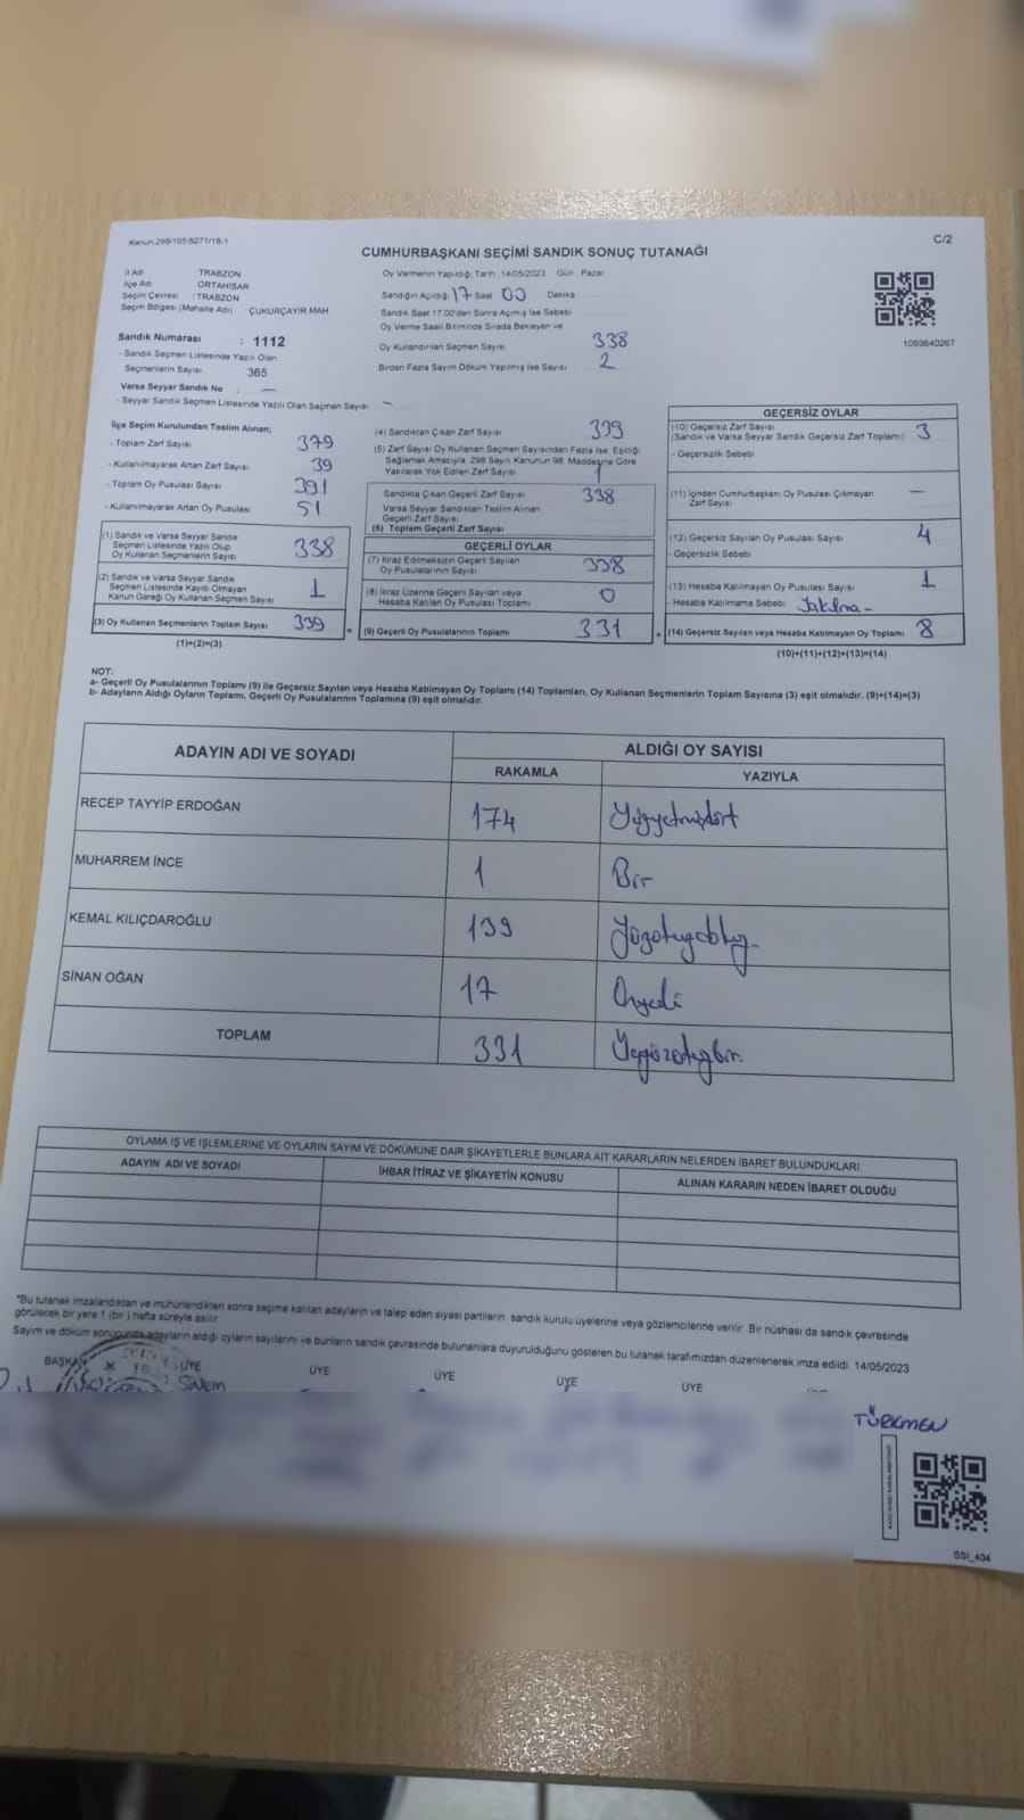 Kanun:298/105:6271/18-1
C/2
CUMHURBAŞKANI SEÇİMİ SANDIK SONUÇ TUTANAĞI
İl Adı TRABZON
İlçe Adı ORTAHİSAR
Seçim Çevresi : TRABZON
Seçim Bölgesi (Mahalle Adı) ÇUKURÇAYIR MAH
Sandık Numarası : 1112
- Sandık Seçmen Listesinde Yazılı Olan
Seçmenlerin Sayısı 365
Varsa Seyyar Sandık No : —
- Seyyar Sandık Seçmen Listesinde Yazılı Olan Seçmen Sayısı –
Oy Vermenin Yapıldığı Tarih 14/05/2023 Gün Pazar
Sandığın Açıldığı 17 Saat 00 Dakika
Sandık Saat 17.00'den Sonra Açılmış İse Sebebi
Oy Verme Saati Bitiminde Sırada Bekleyen ve
Oy Kullandırılan Seçmen Sayısı 338
Birden Fazla Sayım Döküm Yapılmış İse Sayısı 2
1093640267
İlçe Seçim Kurulundan Teslim Alınan;
- Toplam Zarf Sayısı 379
- Kullanılmayarak Artan Zarf Sayısı 39
- Toplam Oy Pusulası Sayısı 391
- Kullanılmayarak Artan Oy Pusulası 51
(1) Sandık ve Varsa Seyyar Sandık
Seçmen Listesinde Yazılı Olup
Oy Kullanan Seçmenlerin Sayısı 338
(2) Sandık ve Varsa Seyyar Sandık
Seçmen Listesinde Kayıtlı Olmayan
Kanun Gereği Oy Kullanan Seçmen Sayısı 1
(3) Oy Kullanan Seçmenlerin Toplam Sayısı 339
(1)+(2)=(3)
(4) Sandıktan Çıkan Zarf Sayısı 339
(5) Zarf Sayısı Oy Kullanan Seçmen Sayısından Fazla İse, Eşitliği
Sağlamak Amacıyla, 298 Sayılı Kanunun 98. Maddesine Göre
Yakılarak Yok Edilen Zarf Sayısı 1
Sandıkta Çıkan Geçerli Zarf Sayısı 338
Varsa Seyyar Sandıktan Teslim Alınan
Geçerli Zarf Sayısı
(6) Toplam Geçerli Zarf Sayısı
GEÇERLİ OYLAR
(7) İtiraz Edilmeksizin Geçerli Sayılan
Oy Pusulalarının Sayısı 338
(8) İtiraz Üzerine Geçerli Sayılan veya
Hesaba Katılan Oy Pusulası Toplamı 0
(9) Geçerli Oy Pusulalarının Toplamı 331
GEÇERSİZ OYLAR
(10) Geçersiz Zarf Sayısı
(Sandık ve Varsa Seyyar Sandık Geçersiz Zarf Toplamı) 3
- Geçersizlik Sebebi
(11) İçinden Cumhurbaşkanı Oy Pusulası Çıkmayan
Zarf Sayısı —
(12) Geçersiz Sayılan Oy Pusulası Sayısı 4
Geçersizlik Sebebi
(13) Hesaba Katılmayan Oy Pusulası Sayısı 1
Hesaba Katılmama Sebebi Yakılma -
(14) Geçersiz Sayılan veya Hesaba Katılmayan Oy Toplamı 8
(10)+(11)+(12)+(13)=(14)
NOT:
a- Geçerli Oy Pusulalarının Toplamı (9) ile Geçersiz Sayılan veya Hesaba Katılmayan Oy Toplamı (14) Toplamları, Oy Kullanan Seçmenlerin Toplam Sayısına (3) eşit olmalıdır. (9)+(14)=(3)
b- Adayların Aldığı Oyların Toplamı, Geçerli Oy Pusulalarının Toplamına (9) eşit olmalıdır.
ADAYIN ADI VE SOYADI
ALDIĞI OY SAYISI
RAKAMLA YAZIYLA
RECEP TAYYİP ERDOĞAN 174 Yüzyetmişdört
MUHARREM İNCE 1 Bir
KEMAL KILIÇDAROĞLU 139 Yüzotuzdokuz
SİNAN OĞAN 17 Onyedi
TOPLAM 331 Üçyüzotuzbir.
OYLAMA İŞ VE İŞLEMLERİNE VE OYLARIN SAYIM VE DÖKÜMÜNE DAİR ŞİKAYETLERLE BUNLARA AİT KARARLARIN NELERDEN İBARET BULUNDUKLARI
ADAYIN ADI VE SOYADI İHBAR İTİRAZ VE ŞİKAYETİN KONUSU ALINAN KARARIN NEDEN İBARET OLDUĞU
*Bu tutanak imzalandıktan ve mühürlendikten sonra seçime katılan adayların ve talep eden siyasi partilerin sandık kurulu üyelerine veya gözlemcilerine verilir. Bir nüshası da sandık çevresinde
görülecek bir yere 1 (bir) hafta süreyle asılır.
Sayım ve döküm sonucunda adayların aldığı oyların sayılarını ve bunların sandık çevresinde bulunanlara duyurulduğunu gösteren bu tutanak tarafımızdan düzenlenerek imza edildi. 14/05/2023
BAŞKAN ÜYE ÜYE ÜYE ÜYE ÜYE
TÜRKMEN
SSI_434